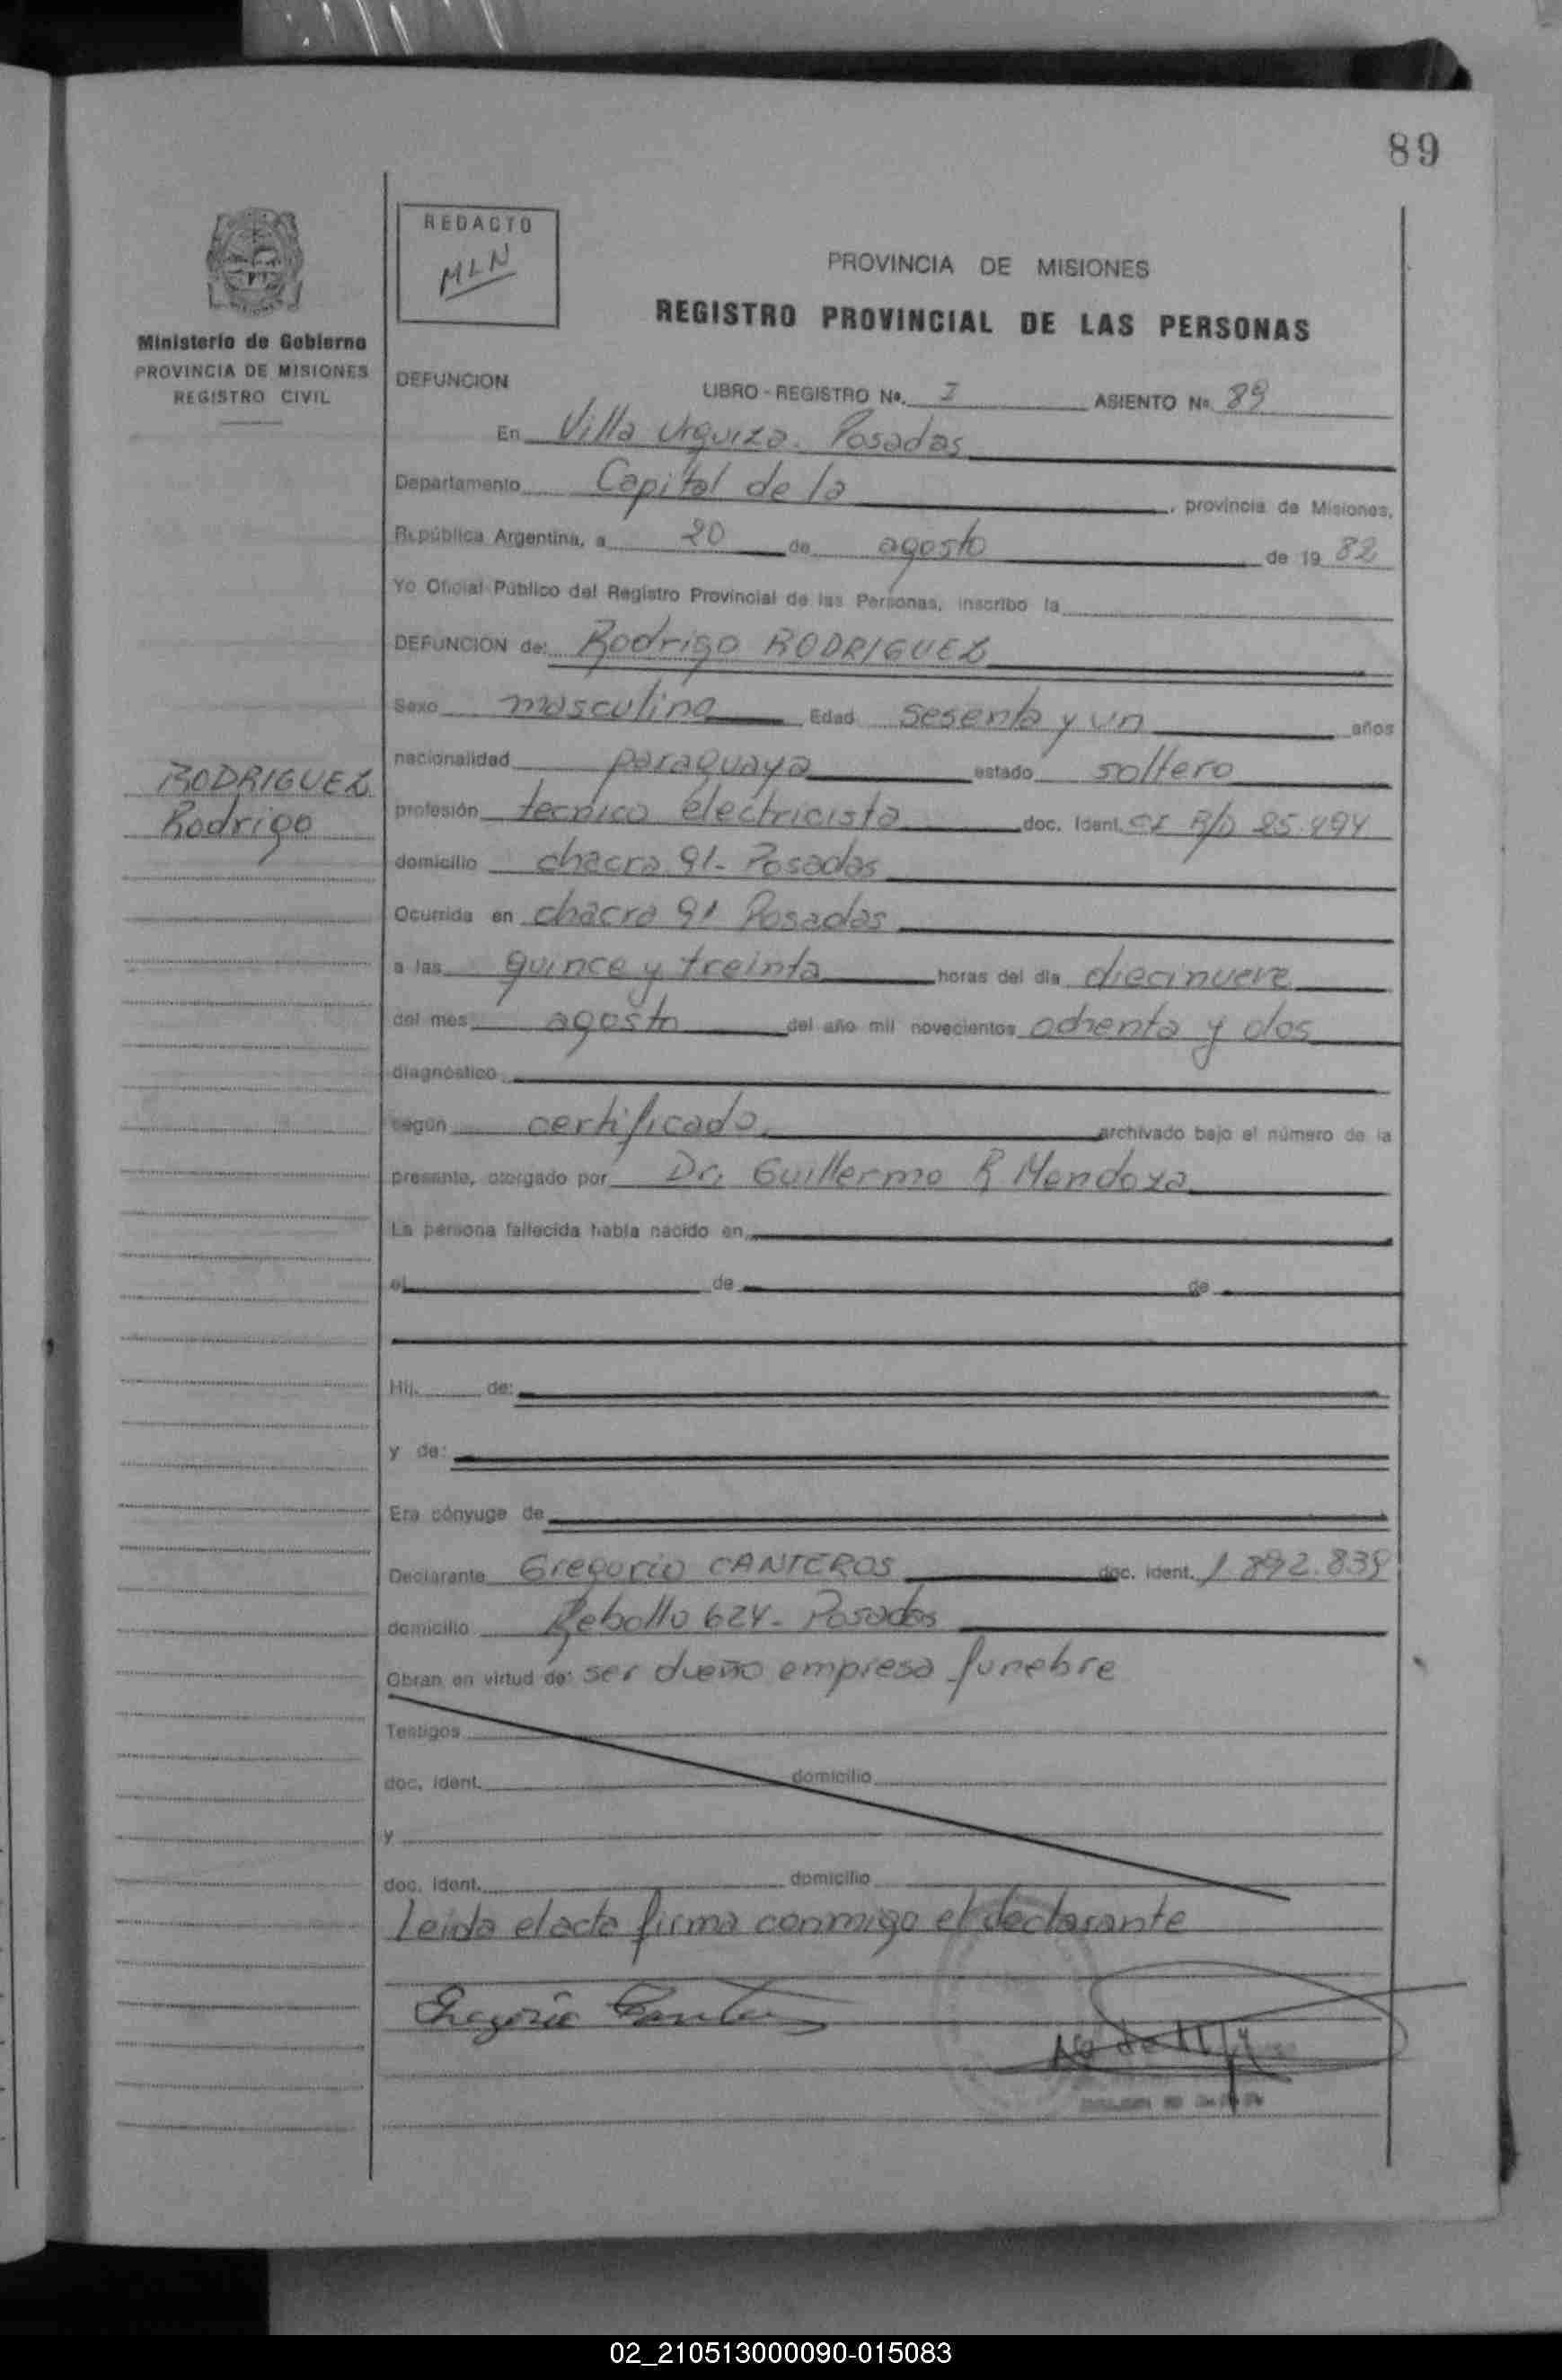 89
REDACTO
MLN
PROVINCIA DE MISIONES
REGISTRO PROVINCIAL DE LAS PERSONAS
Ministerio de Gobierno
PROVINCIA DE MISIONES
REGISTRO CIVIL
DEFUNCION LIBRO - REGISTRO Nº. I ASIENTO Nº. 89
En Villa Urquiza. Posadas
Departamento Capital de la , provincia de Misiones,
República Argentina, a 20 de agosto de 19 82
Yo Oficial Público del Registro Provincial de las Personas, inscribo la
DEFUNCION de: Rodrigo RODRIGUEZ
Sexo masculino Edad sesenta y un años
nacionalidad paraguaya estado soltero
RODRIGUEZ
Rodrigo
profesión tecnico electricista doc. Ident. CI 25.494
domicilio chacra 91- Posadas
Ocurrida en chacra 91 Posadas
a las quince y treinta horas del día diecinueve
del mes agosto del año mil novecientos ochenta y dos
diagnóstico
según certificado archivado bajo el número de la
presente, otorgado por Dr. Guillermo R Mendoza
La persona fallecida había nacido en
el de de
Hij. de:
y de:
Era cónyuge de
Declarante Gregorio CANTEROS doc. Ident. 1.892.839
domicilio Rebollo 624- Posadas
Obran en virtud de: ser dueño empresa funebre
Testigos
doc. Ident. domicilio
y
doc. Ident. domicilio
Leida el acta firma conmigo el declarante
Gregorio
02_210513000090-015083